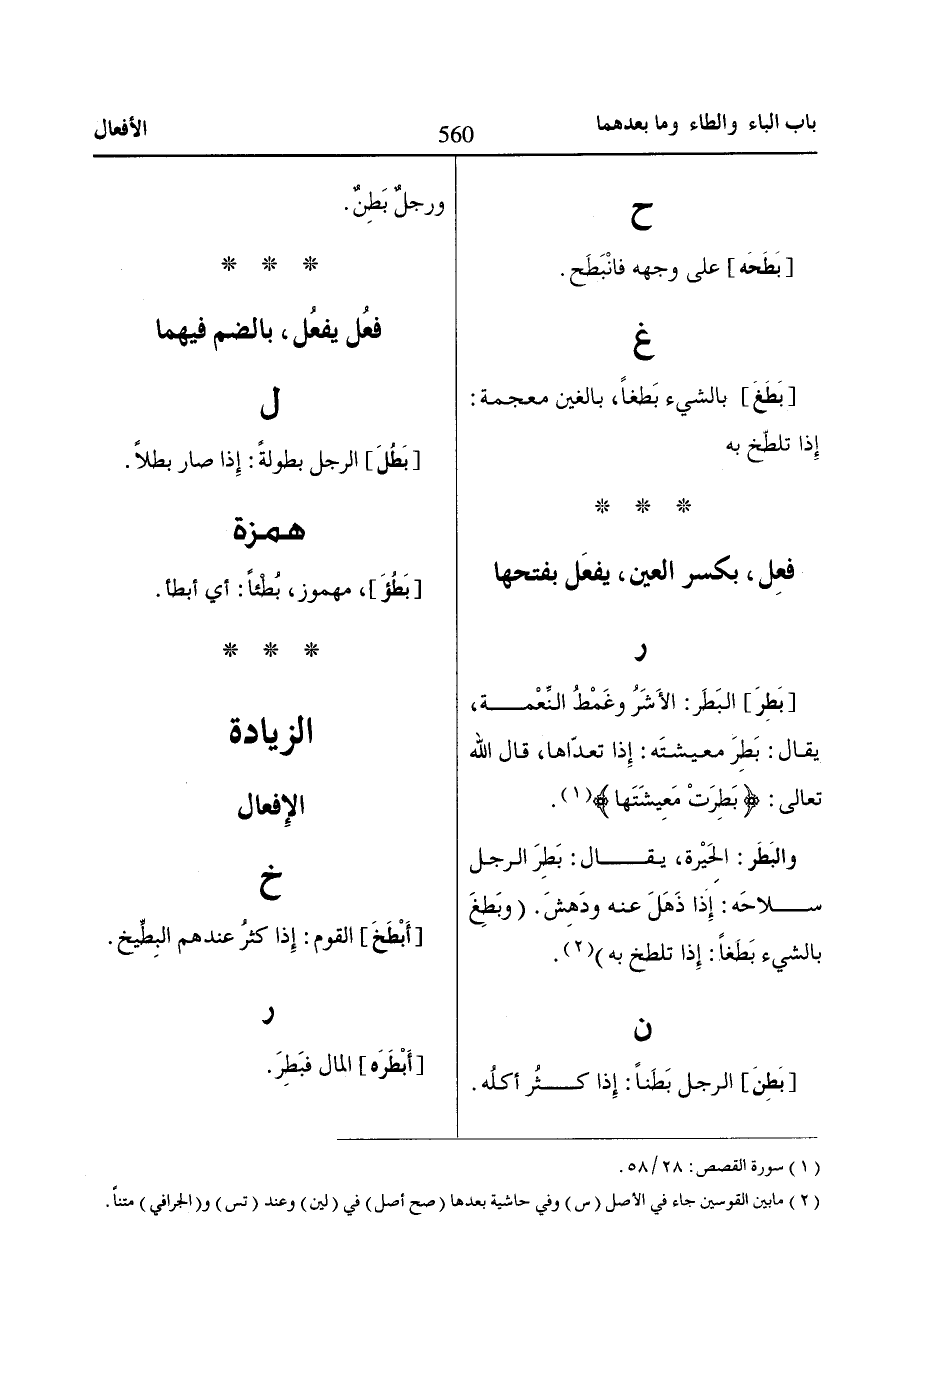 باب الباء والطاء وما بعدهما
560
الأفعال
ح
[بَطَحَه] على وجهه فانْبَطَح.
غ
[بَطَغَ] بالشيء بَطغاً، بالغين معجمة:
إذا تلطّخ به
* * *
فعِل، بكسر العين، يفعَل بفتحها
ر
[بَطِرَ] البَطَر: الأَشَرُ وغَمْطُ النِّعْمـــة،
يقال: بَطِرَ معيشتَه: إِذا تعدّاها، قال الله
تعالى: ﴿بَطِرَتْ مَعِيشَتَها﴾(١).
والبَطَر: الحَيْرة، يقـــال: بَطِرَ الرجل
ســـلاحَه: إِذا ذَهَلَ عنه ودَهِشَ. (وبَطِغَ
بالشيء بَطَغاً: إِذا تلطخ به)(٢).
ن
[بَطِنَ] الرجل بَطَناً: إِذا كـــثُر أكلُه.
ورجلٌ بَطِنٌ.
* * *
فعُل يفعُل، بالضم فيهما
ل
[بَطُلَ] الرجل بطولةً: إِذا صار بطلاً.
همزة
[بَطُؤَ]، مهموز، بُطْئاً: أي أبطأ.
* * *
الزيادة
الإِفعال
خ
[أَبْطَخَ] القوم: إِذا كثرُ عندهم البِطِّيخ.
ر
[أَبْطَرَه] المال فبَطِرَ.
(١) سورة القصص: ٢٨/٥٨.
(٢) مابين القوسين جاء في الأصل (س) وفي حاشية بعدها (صح أصل) في (لين) وعند (تس) و(الجرافي) متناً.